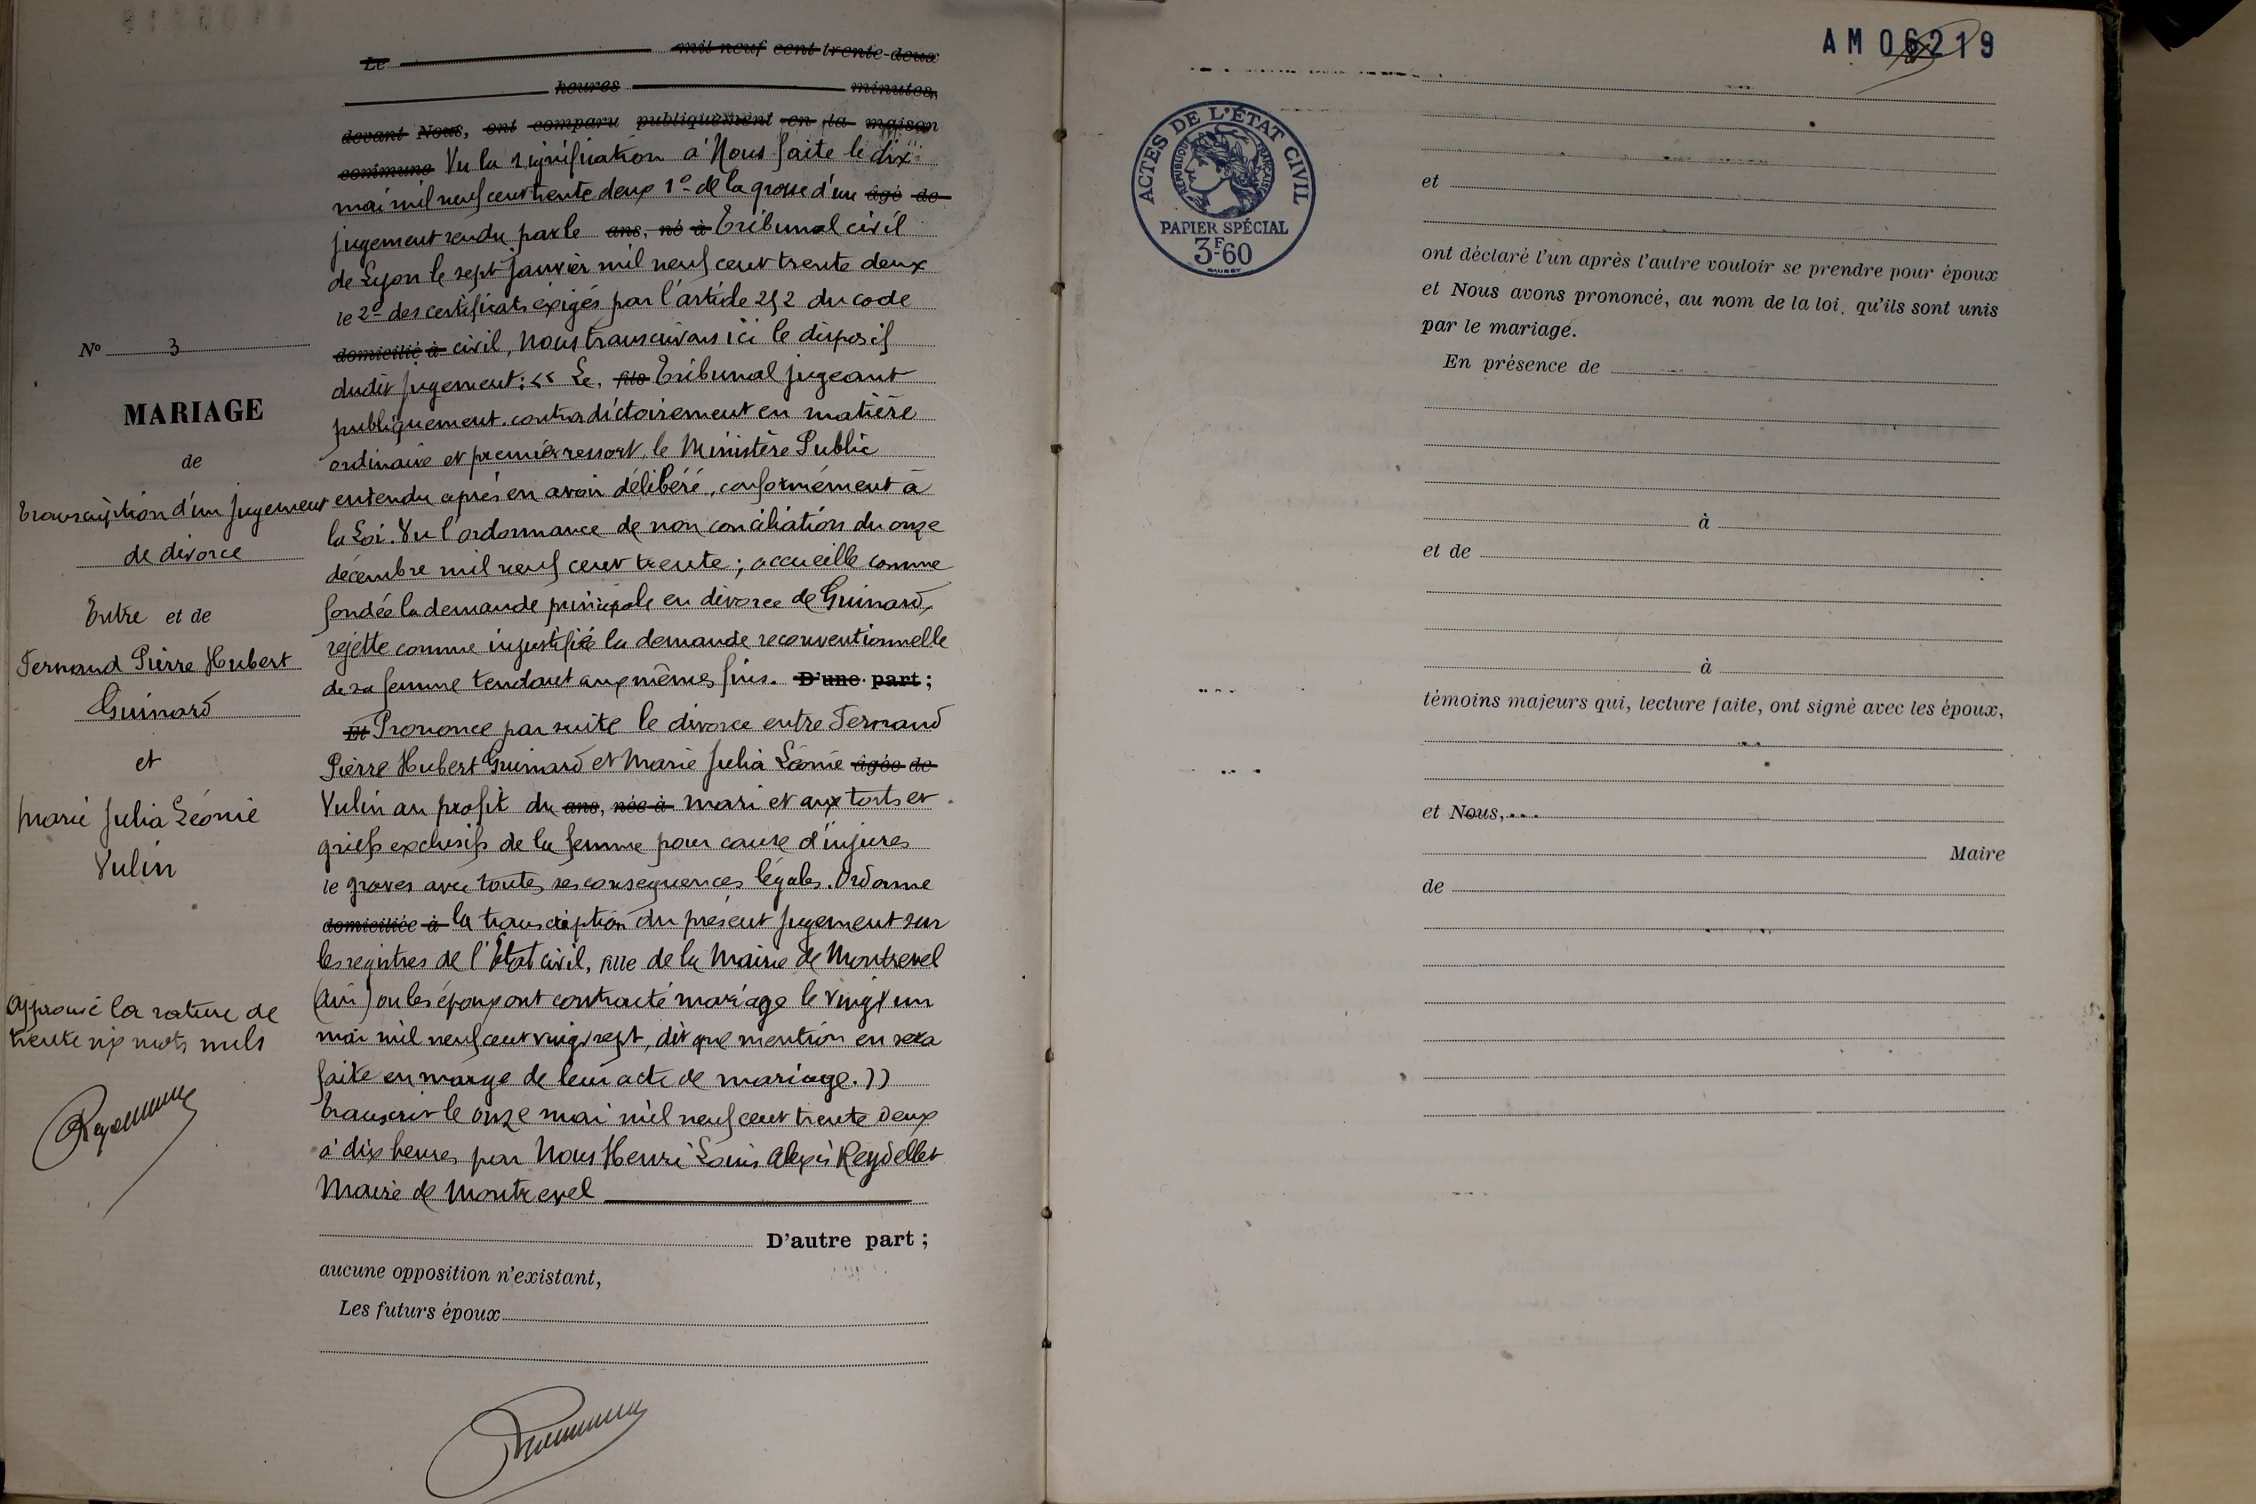 Le mil neuf cent trente-deux
heures minutes,
devant Nous, ont comparu publiquement en la maison
commune Vu la signification à Nous faite le dix
mai mil neuf cent trente deux 1º de la grosse d'un âgé de
jugement rendu par le ans, né à Tribunal civil
de Lyon le sept janvier mil neuf cent trente deux
le 2º des certificats exigés par l'article 252 du code
domicilié à civil, Nous transcrivons ici le disposif
dudit jugement: << Le, fils Tribunal jugeant
publiquement. contradictoirement en matière
ordinaire et premier ressort, le Ministère Public
entendu après en avoir délibéré, conformément à
la Loi. Vu l'ordonnance de non conciliation du onze
décembre mil neuf cent trente; accueille comme
fondée la demande principale en divorce de Guinard,
rejette comme injustifiée la demande reconventionnelle
de sa femme tendant aux mêmes fins. D'une part;
Et Prononce par suite le divorce entre Fernand
Pierre Hubert Guinard et Marie Julia Léonie âgée de
Vulin au profit du ans, née à mari et aux torts et
griefs exclusifs de la femme pour cause d'injures
le graves avec toutes ses consequences légales. Ordonne
domiciliée à la transcription du présent jugement sur
les registres de l'Etat civil, fille de la Mairie de Montrevel
(Ain) ou les époux ont contracté mariage le vingt un
mai mil neuf cent vingt sept, dit que mention en sera
faite en marge de leur acte de mariage. >>
Transcrit le onze mai mil neuf cent trente deux
à dix heures par Nous Henri Louis Alexis Reydellet
Maire de Montrevel
D'autre part;
aucune opposition n'existant,
Les futurs époux
Nº 3
MARIAGE
de
Transcription d'un jugement
de divorce
Entre et de
Fernand Pierre Hubert
Guinard
et
Marie Julia Léonie
Vulin
Approuvé la rature de
trente six mots nuls
AM 06219
ACTES DE L'ÉTAT CIVIL
RÉPUBLIQUE FRANÇAISE
PAPIER SPÉCIAL
3F60
et
ont déclaré l'un après l'autre vouloir se prendre pour époux
et Nous avons prononcé, au nom de la loi, qu'ils sont unis
par le mariage.
En présence de
à
et de
à
témoins majeurs qui, lecture faite, ont signé avec les époux,
et Nous,
Maire
de